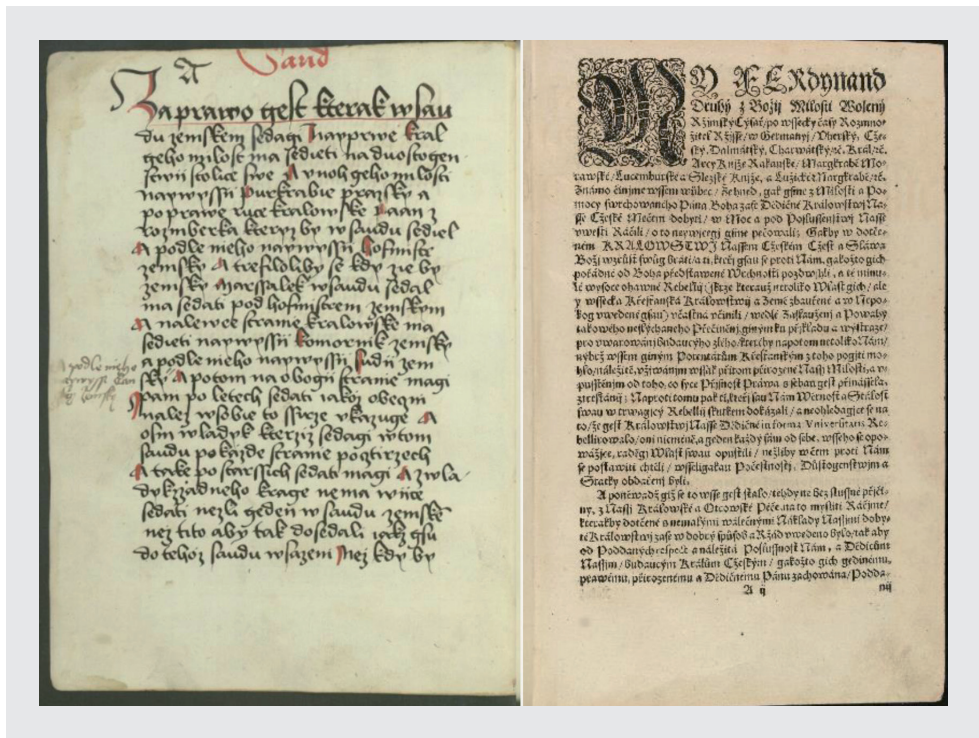 A Saud
Za prawo gest kterak w sau
du zemskem sedagi Nayprwe kral
geho milost ma sedieti na duostogen
stwii stolice swe A v noh geho milosti
naywyssii Purkrabie prazsky a
po prawe ruce kralowske Paan z
rozmberka kteryz by w saudu sediel
A podle nieho naywyssii hofmistr
zemsky A trefilliby se kdy zie by
zemsky Marssalek w saudu sedal
ma sedati pod hofmistrem zemskym
A na lewce stranie kralowske ma
sedieti naywyssii komornik zemsky
a podle nieho naywyssii sudii zem
sky A potom na obogii stranie magi
pani po letech sedati iakoz obecni
nalez w sobie to ssirze vkazuge A
osm wladyk kterziz sedagi w tom
saudu po kazde stranie po cztirzech
A take po starssich sedati magi A z wla
dyk zzadneho krage nema wiice
sedati nezli geden w saudu zemske
nez tito aby tak dosedali iakz gsu
do tehoz saudu wsazeni Nez kdy by
a podle nieho
MY FERdynand
Druhý z Boží Milosti Wolený
Ržímský Cýsař/ po wssecky časy Rozmno-
žitel Ržísse/ w Germanyj/ Vherský, Cže-
ský, Dalmátský, Charwátský/ rč. Král/ rč.
Arcy Kníže Rakauské/ Margkrabě Mo-
rawské/ Lucemburské a Slezské Kníže, a Lužický Margkrabě/ rč.
Známo činjme wssem wůbec/ Že hned, gak gsme z Milosti a Po-
mocy swrchowaného Pána Boha zase Dědičné Králowstwj Na-
sse Cžeské Mečem dobyli/ w Moc a pod Poslussenstwj Nasse
vwésti Ráčili/ o to neywjcegi gsme pečowali; Gakby w dotče-
ném KRALOWSTWJ Nassem Cžeském Cžest a Sláwa
Božj wzrůst swůg bráti/ a ti, kteřj gsau se proti Nám, gakožto gich
pořádné od Boha představené Wrchnosti pozdwihli, a té minu-
lé wysoce ohawné Rebellij (skrze kterauž netoliko Wlast gich/ ale
y wssecka Křesťanská Králowstwj a Země zbauřené a w Nepo-
kog vwedené gsau) včastna včinili/ wedlé Zaslaužení a Powahy
takowého neslýchaného Přečinění, giným ku přjkladu a weystraze/
pro vwarowánj budaucýho zlého/ kteréhy napotom netoliko Nám/
nýbrž wssem giným Potentátům Křesťanským z toho pogjti mo-
hlo/ náležitě, vžíwánjm wssak přitom přirozené Nassj Milosti, a v-
pusstěnjm od toho, co syce Přjsnost Práwa s sebau gest přinássela,
ztrestáni; Naproti tomu pak ti, kteřj sau Nám Wěrnost a Stálost
swau w trwagjcý Rebellij skutkem dokázali/ a neohledagjce se na
to/ že gest Králowstwj Nasse Dědičné in forma Vniversitatis Re-
bellirowalo/ oni nicméně, a geden každý sám od sebe, wsseho se opo-
wážjce, raděgi Wlast swau opustili/ nežliby w čem proti Nám
se postawiti chtěli/ wsseligakau Počestnostj, Důstogenstwjm a
Statky obdařeni byli.
A poněwadž giž se to wsse gest stalo/ tehdy ne bez slussné přjči-
ny, z Nassj Králowské a Otcowské Péče na to mysliti Ráčjme/
kterakby dotčené s nemalými wálečnými Náklady Nassimi doby-
té Králowstwj zase w dobrý způsob a Řád vwedeno bylo/ tak aby
od Poddaných respect a náležitá Poslussnost Nám, a Dědicům
Nassim/ budaucým Králům Cžeským/ gakožto gich gedinému,
prawému, přirozenému a Dědičnému Pánu zachowána/ Podda-
A ij
nij